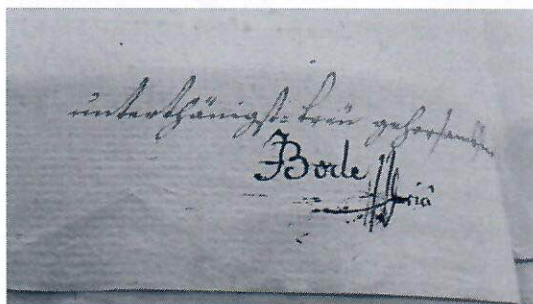 unterthänigst-treu gehorsamster
Bode